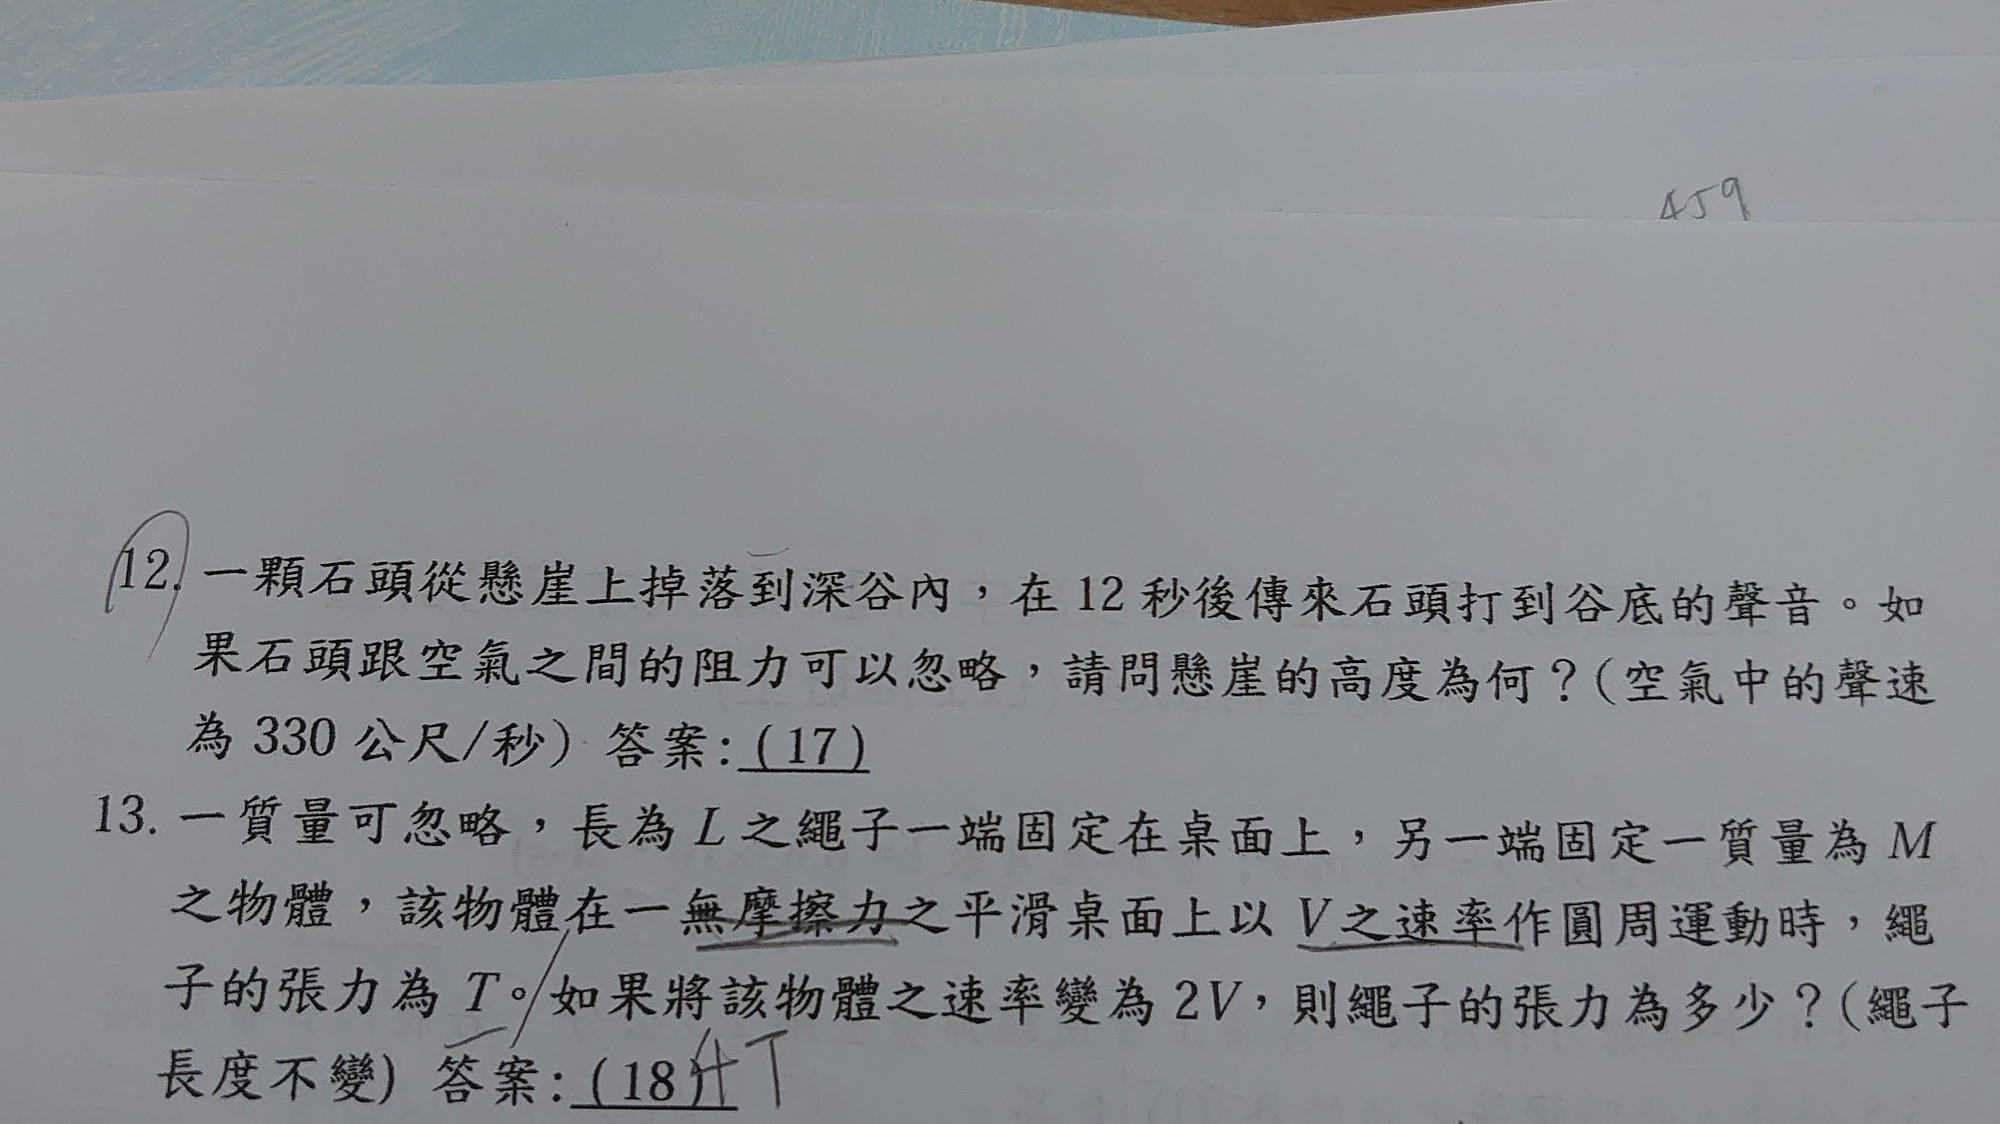 459
12. 一顆石頭從懸崖上掉落到深谷內，在 12 秒後傳來石頭打到谷底的聲音。如
果石頭跟空氣之間的阻力可以忽略，請問懸崖的高度為何？(空氣中的聲速
為 330 公尺/秒) 答案: (17)
13. 一質量可忽略，長為 L 之繩子一端固定在桌面上，另一端固定一質量為 M
之物體，該物體在一無摩擦力之平滑桌面上以 V 之速率作圓周運動時，繩
子的張力為 T。如果將該物體之速率變為 2V，則繩子的張力為多少？(繩子
長度不變) 答案: (18) 4T